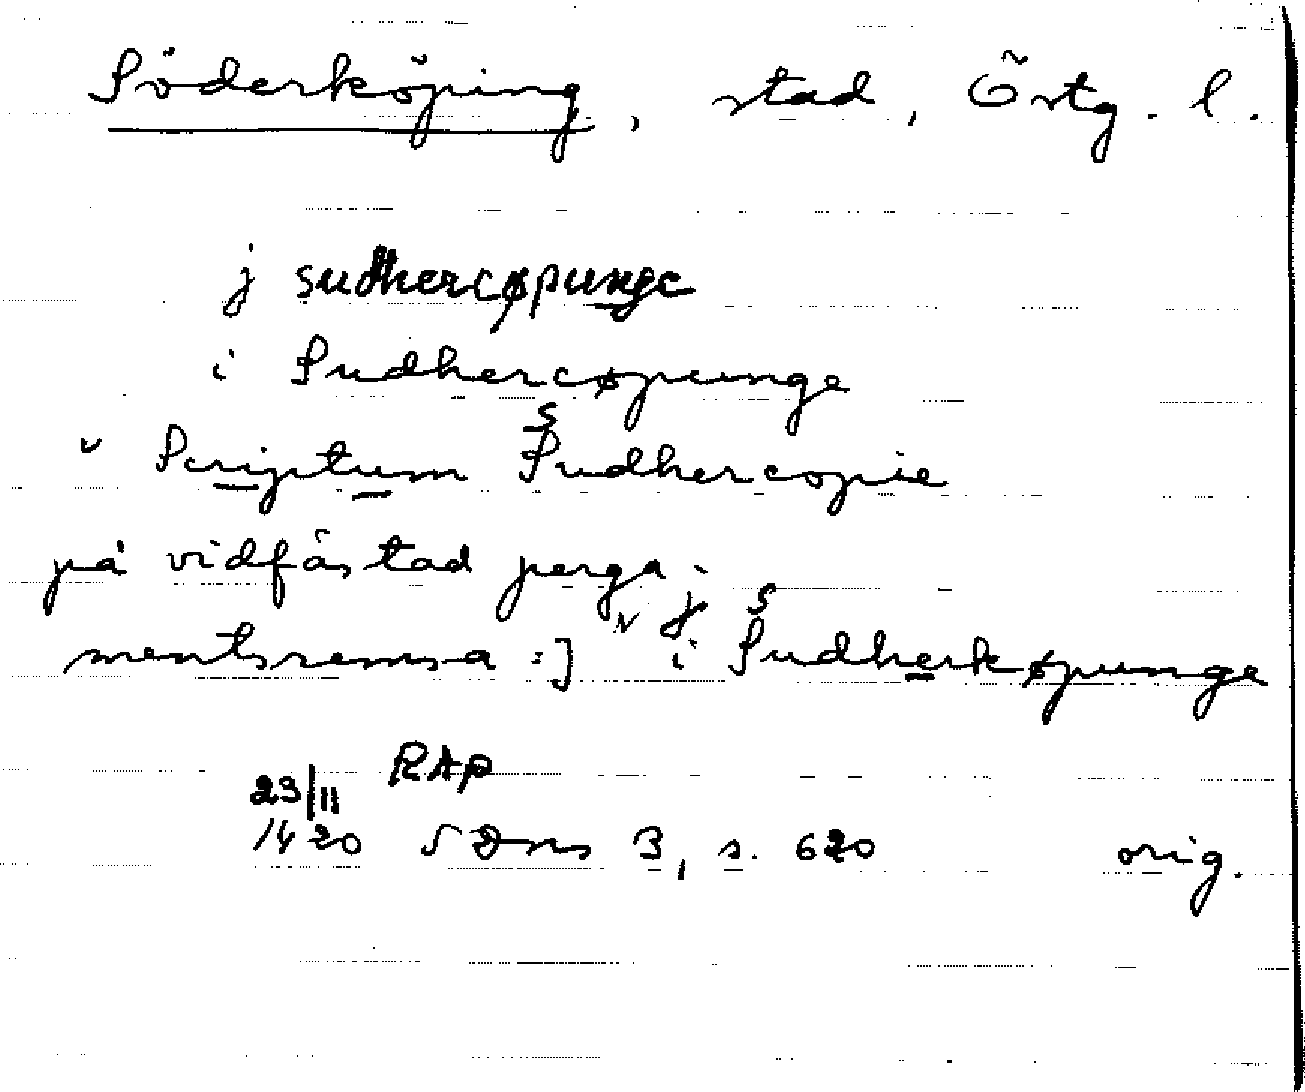 Söderköping, stad, Östg. l.
j sudhercøpunge
i Sudhercøpunge
v Scriptum Sudhercopie
på vidfästad perga-
mentsremsa :] i Sudherkøpunge
23/11 RAP
1420 SDns 3, s. 620 orig.